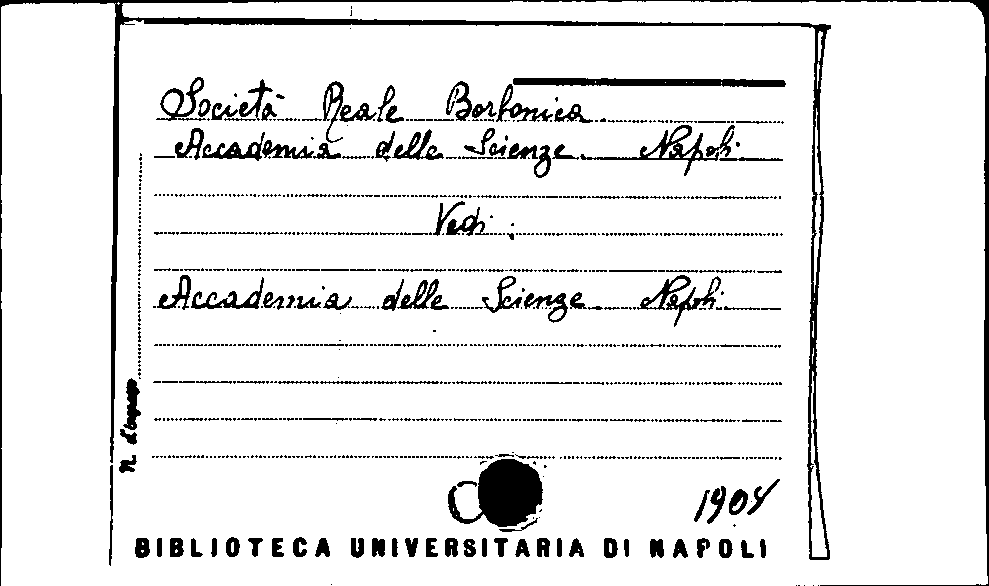 Società Reale Borbonica.
Accademia delle Scienze. Napoli.
Vedi:
Accademia delle Scienze. Napoli.
N. d'ingresso
C
1904
BIBLIOTECA UNIVERSITARIA DI NAPOLI